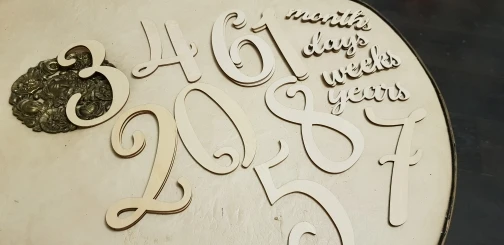 3 4 6 1 months
days
weeks
years
2 0 8 7
5